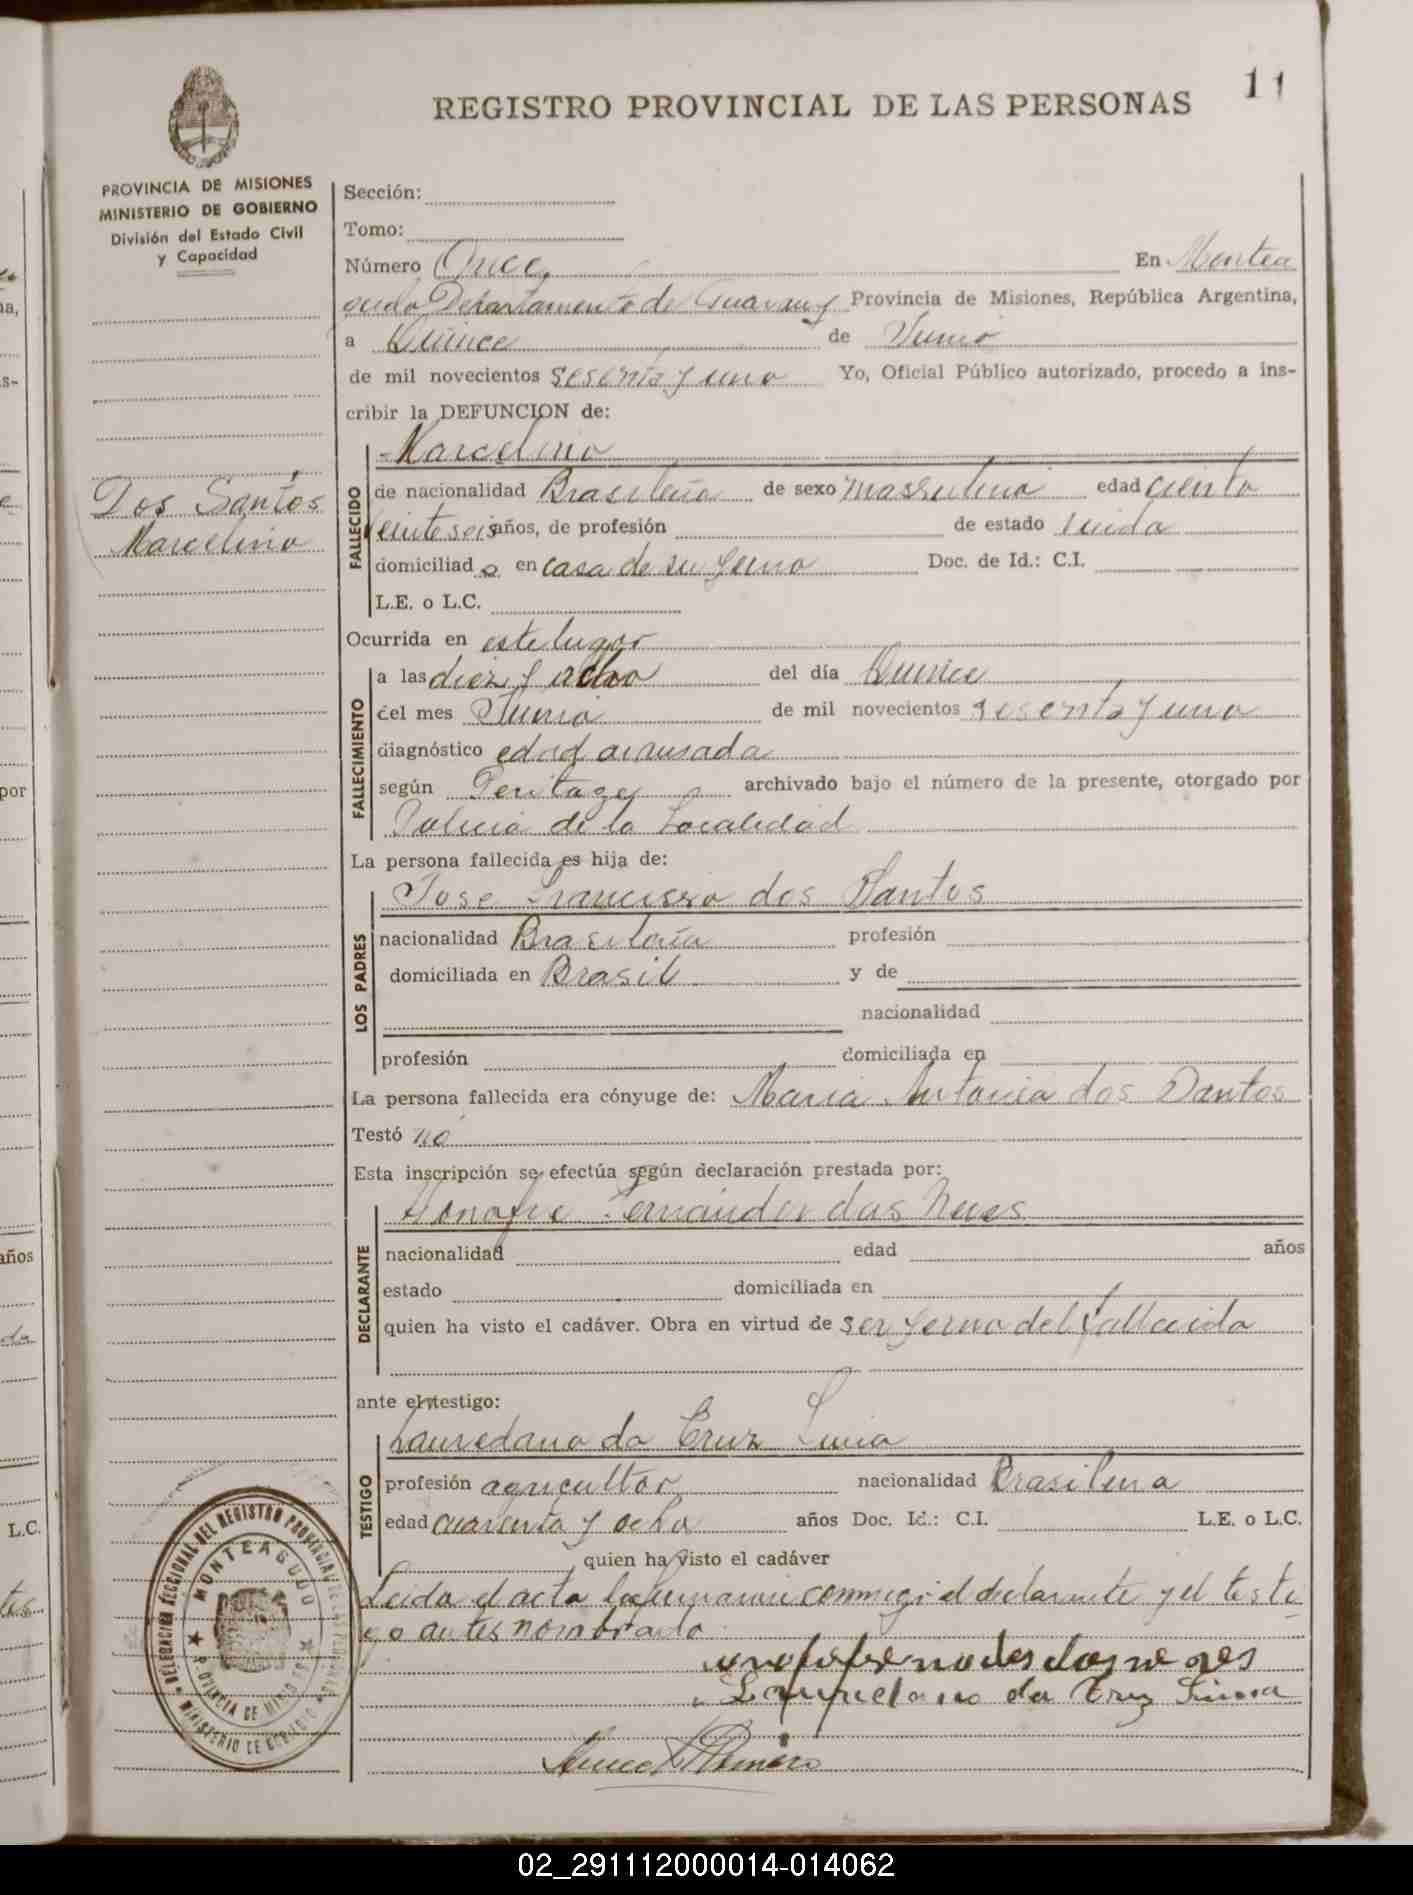 11
REGISTRO PROVINCIAL DE LAS PERSONAS
PROVINCIA DE MISIONES
MINISTERIO DE GOBIERNO
División del Estado Civil
y Capacidad
Sección:
Tomo:
Número Once En Montea
gudo Departamento de Guarany Provincia de Misiones, República Argentina,
a Quince de Junio
de mil novecientos sesenta y uno Yo, Oficial Público autorizado, procedo a ins-
cribir la DEFUNCION de:
Marcelino
Dos Santos
Marcelino
FALLECIDO
de nacionalidad Brasileña de sexo masculino edad ciento
veinte seis años, de profesión de estado viuda
domiciliad o en casa de su yerno Doc. de Id.: C.I.
L.E. o L.C.
Ocurrida en este lugar
FALLECIMIENTO
a las diez y ocho del día Quince
del mes Junio de mil novecientos sesenta y uno
diagnóstico edad avansada
según Peritage archivado bajo el número de la presente, otorgado por
Policia de la Localidad
La persona fallecida es hija de:
LOS PADRES
Jose Francisco dos Santos
nacionalidad Brasileña profesión
domiciliada en Brasil y de
nacionalidad
profesión domiciliada en
La persona fallecida era cónyuge de: Maria Antonia dos Santos
Testó no
Esta inscripción se efectúa según declaración prestada por:
DECLARANTE
Honofre Fernández das Neves
nacionalidad edad años
estado domiciliada en
quien ha visto el cadáver. Obra en virtud de ser yerno del fallecido
ante el testigo:
TESTIGO
Lauredano da Cruz Lima
profesión agricultor nacionalidad Brasilera
edad cuarenta y ocho años Doc. Id.: C.I. L.E. o L.C.
quien ha visto el cadáver
Leida el acta la firman conmigo el declarante y el testi
go antes nombrado
das neves
da Cruz Lima
DELEGACION SECCIONAL DEL REGISTRO PROVINCIAL DE LAS PERSONAS
MONTEAGUDO
PROVINCIA DE MISIONES
MINISTERIO DE GOBIERNO
02_291112000014-014062